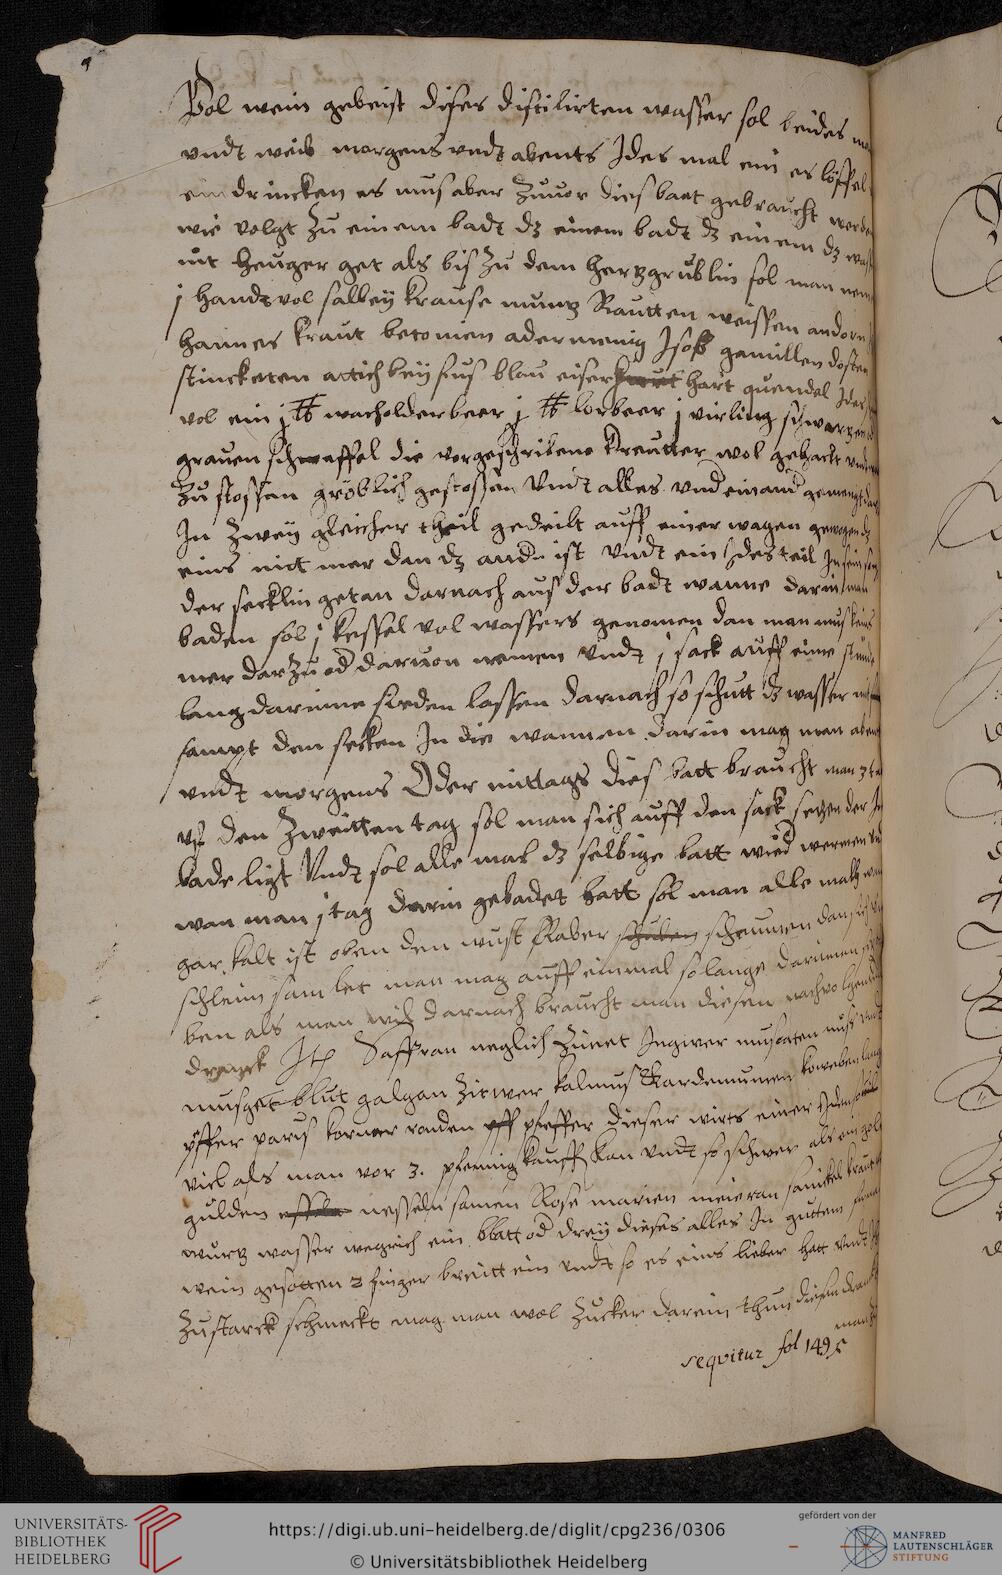 Vol wein gebeist dises distilirten wasser sol beides
vndt weib morgens vndt abents Ides mal ein es löffel
ein drincken es mus aber Zuuor dies baet gebraucht werden
wie volgt Zu einem badt dz einem badt dz einem dz
nit heuger get als bis Zu dem hertzgrüblin sol man
j handtvol salbey krause muntz Rautten weissen andorn
hannes kraut betonien adermenig Isop gamillen dosten
stincketen attich beyfus blau eiser hart quendel Ider
vol ein j ℔ wacholderbeer j ℔ lorbeer j virling schwartzen
grauen schweffel die vorgeschribene kreutter wol gehackt
Zu stossen gröblich gestossen Vndt alles vnd einand gemengt
In Zwey gleicher theil gedeilt auff einer wagen gewogen dz
eins nitt mer dan dz and ist vndt ein Ides teil In
der secklin getan darnach aus der badt wanne darin man
baden sol j kessel vol wassers genomen dan man mus keins
mer darZu od daruon nemen vndt j sack auff eine stunde
lang darinne sieden lassen darnach so schutt dz wasser
sampt den secken In die wannen darin mag man
vndt morgens Oder mittags dies batt braucht man
vf den Zweitten tag sol man sich auff den sack setzen der
bade ligt Vndt sol alle mal dz selbige batt wied wermen
wan man j tag darin gebadet hatt sol man alle malh
gar kalt ist oben den wust scheumen dan sich
schleim samlet man mag auff einmal so lange darinnen
ben als man wil darnach braucht man diesen nachvolgenden
dranck Saffran neglich Zimet Ingwer muscaten nuß
musget blut galgan Zitwer kalmus Kardemumen
pfffer paris korner pfeffer dieser wirts einer
viel als man vor 3. pfennig kauff kan vndt so schwer als ein
gulden nesseln samen Rose marien meieran sanickel kraut
wurtz wasser wegrich ein blatt od drey dieses alles In guttem
wein gesotten 2 finger breitt ein vndt so es eins lieber hatt vndt
Zustarck schmeckt mag man wol Zucker darein thun diesen
man
seqvitur fol 149
UNIVERSITÄTS-
BIBLIOTHEK
HEIDELBERG
https://digi.ub.uni-heidelberg.de/diglit/cpg236/0306
© Universitätsbibliothek Heidelberg
gefördert von der
MANFRED
LAUTENSCHLÄGER
STIFTUNG